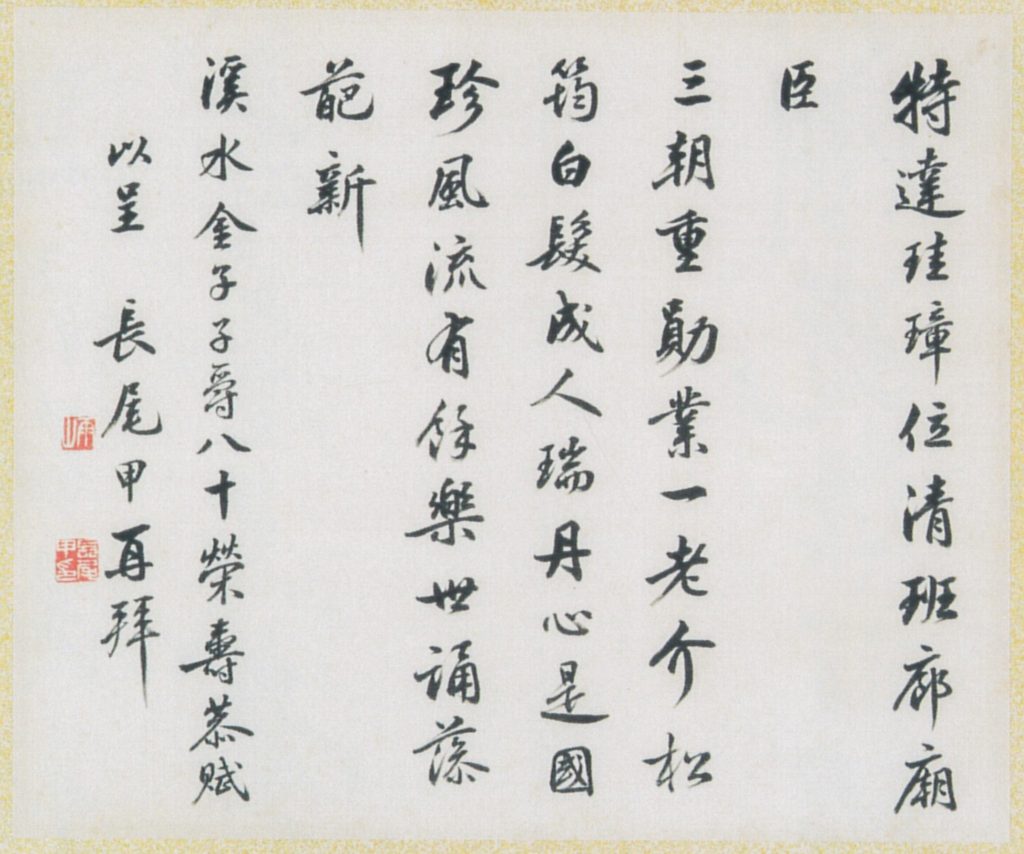 特達珪璋位清班廊廟
臣
三朝重勛業一老介松
筠白髮成人瑞丹心是國
珍風流有餘樂世誦藻
葩新
溪水金子子爵八十榮壽恭賦
以呈 長尾甲再拜